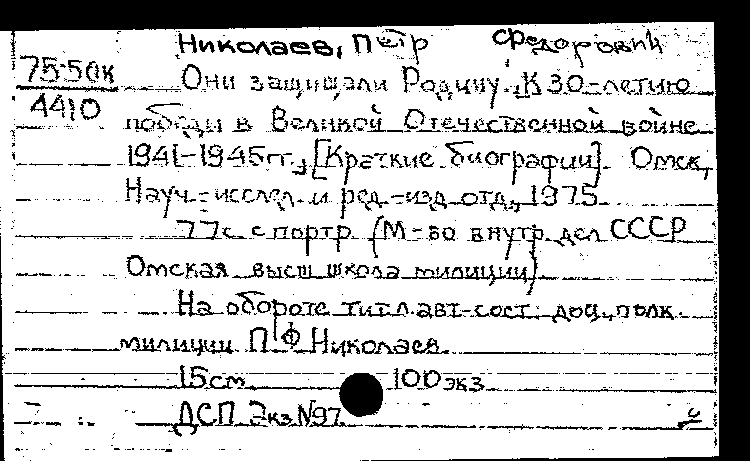 Николаев, Пётр Федорович
75-50к Они защищали Родину. К 30-летию
4410
победы в Великой Отечественной войне
1941-1945гг., [Краткие биографии]. Омск,
Науч.-исслед. и ред.-изд. отд., 1975
77с. с портр. (М-во внутр. дел СССР
Омская высш. школа милиции)
На обороте тит.л. авт.-сост.: доц., полк.
милиции П.Ф. Николаев.
15см. 100экз.
ДСП. Экз. №97.